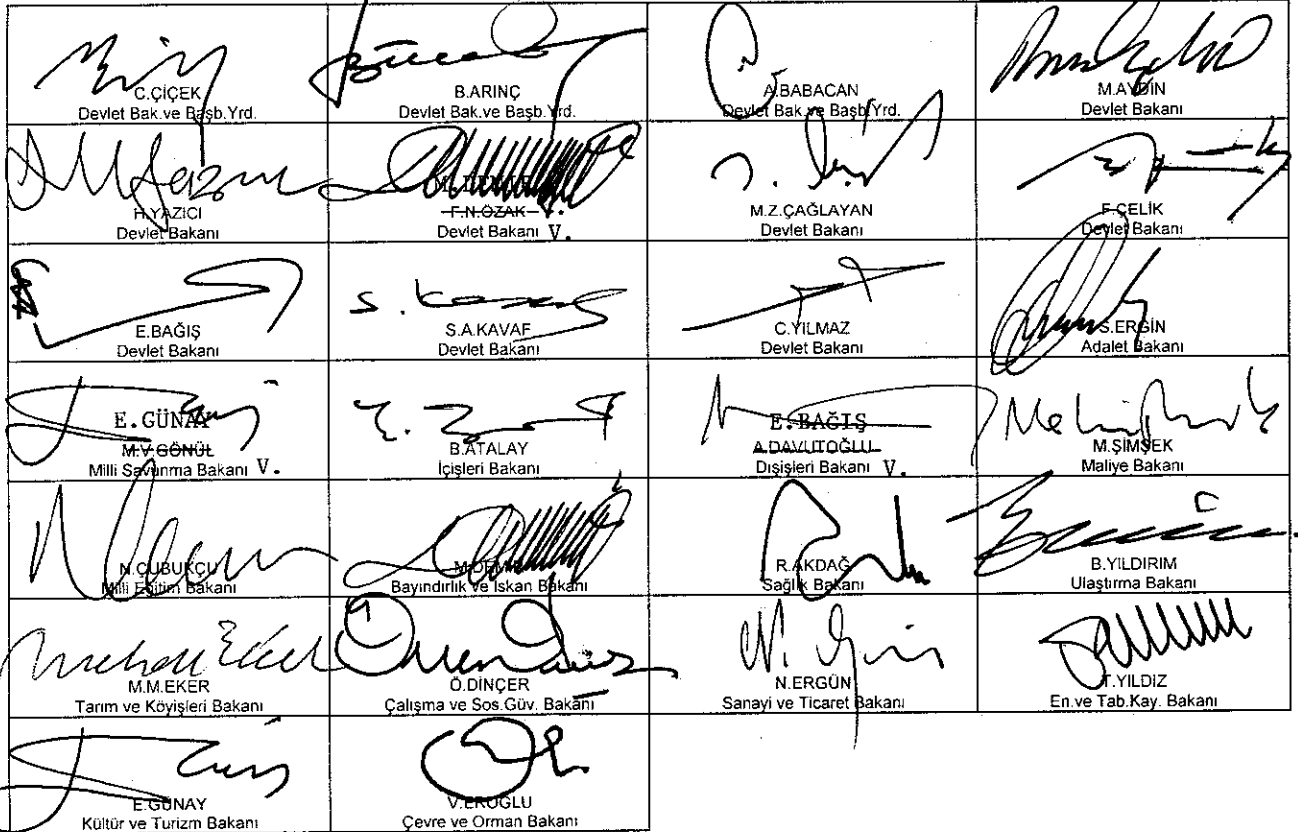 C.ÇİÇEK
Devlet Bak.ve Başb.Yrd.
B.ARINÇ
Devlet Bak.ve Başb.Yrd.
A.BABACAN
Devlet Bak.ve Başb.Yrd.
M.AYDIN
Devlet Bakanı
H.YAZICI
Devlet Bakanı
M.DEMİR
F.N.ÖZAK
Devlet Bakanı V.
M.Z.ÇAĞLAYAN
Devlet Bakanı
F.ÇELİK
Devlet Bakanı
E.BAĞIŞ
Devlet Bakanı
S. Kavaf
S.A.KAVAF
Devlet Bakanı
C.YILMAZ
Devlet Bakanı
S.ERGİN
Adalet Bakanı
E.GÜNAY
M.V.GÖNÜL
Milli Savunma Bakanı V.
B.ATALAY
İçişleri Bakanı
E.BAĞIŞ
A.DAVUTOĞLU
Dışişleri Bakanı V.
M.ŞİMŞEK
Maliye Bakanı
N.ÇUBUKÇU
Milli Eğitim Bakanı
M.DEMİR
Bayındırlık ve İskan Bakanı
R.AKDAĞ
Sağlık Bakanı
B.YILDIRIM
Ulaştırma Bakanı
M.M.EKER
Tarım ve Köyişleri Bakanı
Ö.DİNÇER
Çalışma ve Sos.Güv. Bakanı
N.ERGÜN
Sanayi ve Ticaret Bakanı
T.YILDIZ
En.ve Tab.Kay. Bakanı
E.GÜNAY
Kültür ve Turizm Bakanı
V.EROĞLU
Çevre ve Orman Bakanı